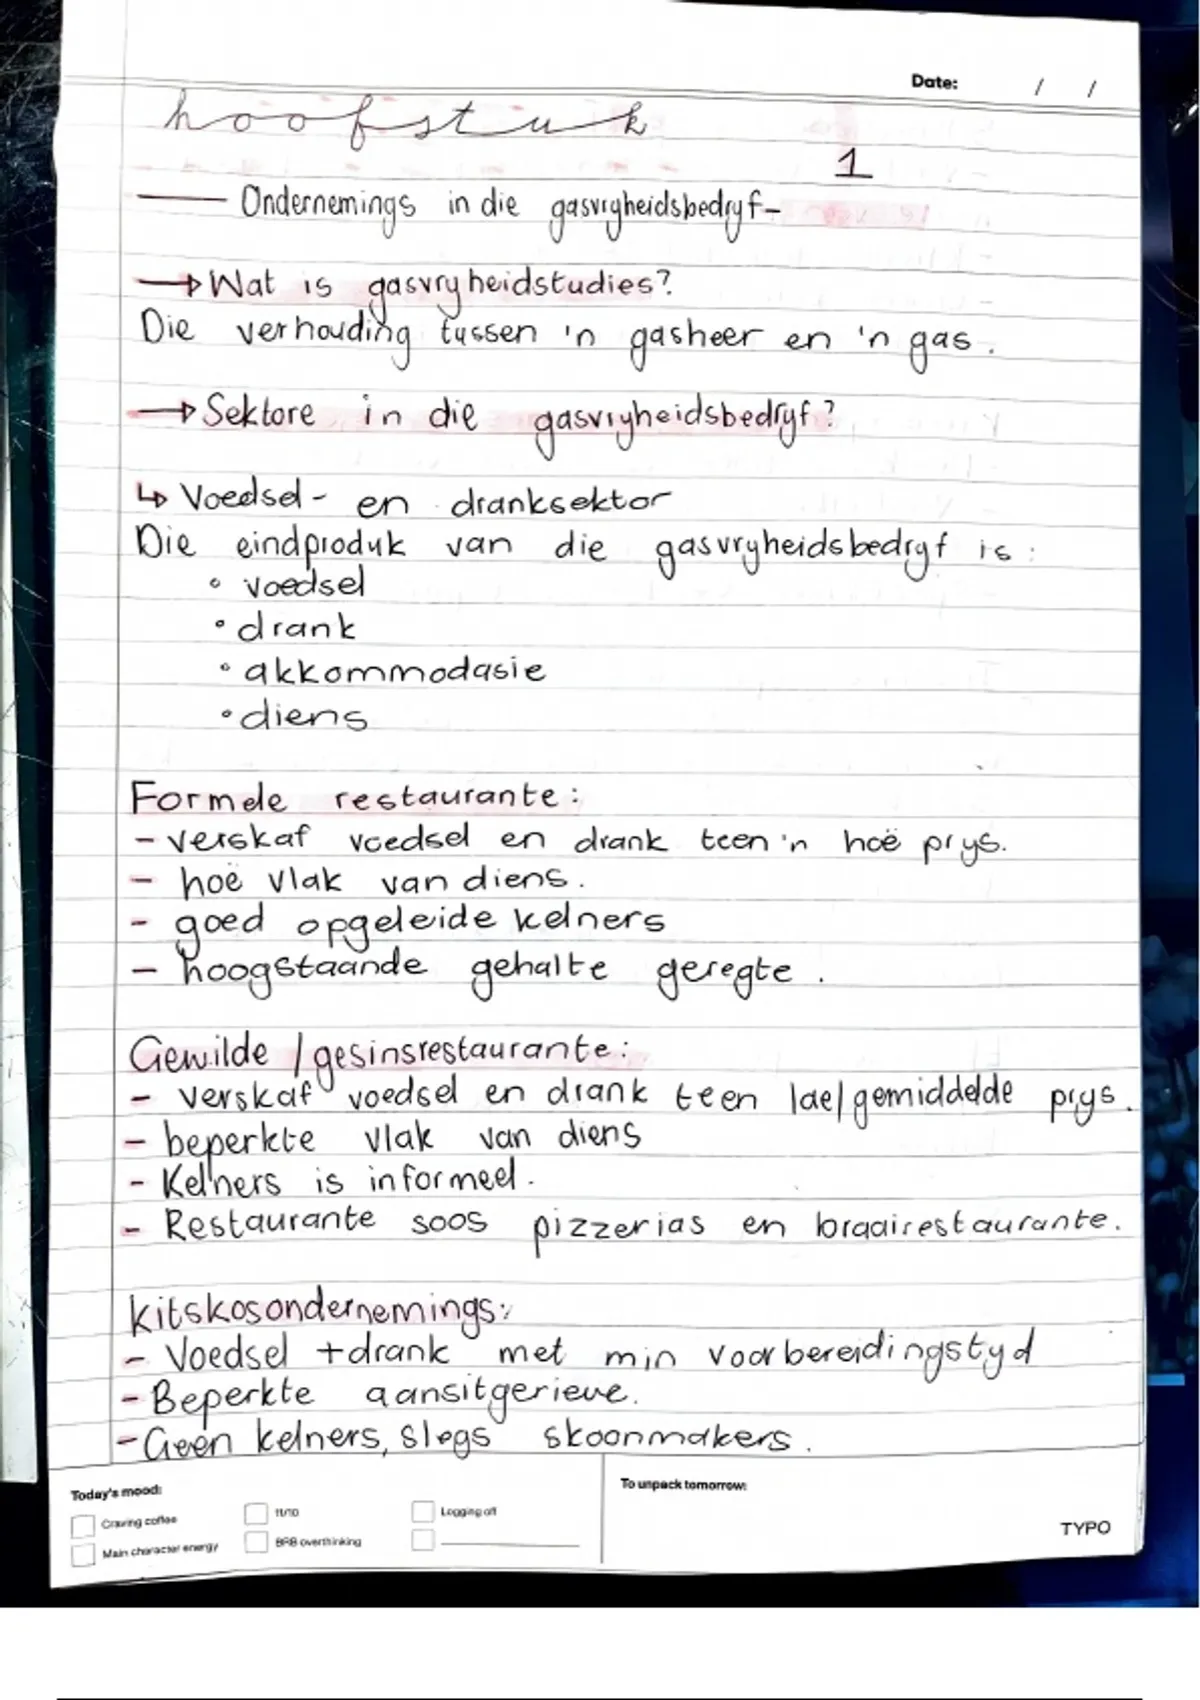 Date: / /
hoofstuk
1
— Ondernemings in die gasvryheidsbedryf -
→ Wat is gasvryheidstudies?
Die verhouding tussen 'n gasheer en 'n gas.
→ Sektore in die gasvryheidsbedryf?
↳ Voedsel- en dranksektor
Die eindproduk van die gasvryheidsbedryf is:
• voedsel
• drank
• akkommodasie
• diens
Formele restaurante:
- verskaf voedsel en drank teen 'n hoë prys.
- hoë vlak van diens.
- goed opgeleide kelners
- hoogstaande gehalte geregte.
Gewilde / gesinsrestaurante:
- verskaf voedsel en drank teen lae/gemiddelde prys.
- beperkte vlak van diens
- Kelners is informeel.
- Restaurante soos pizzerias en braairestaurante.
kitskosondernemings:
- Voedsel + drank met min voorbereidingstyd
- Beperkte aansitgeriewe.
- Geen kelners, slegs skoonmakers.
Today's mood:
Craving coffee
11/10
Logging off
Main character energy
BRB overthinking
To unpack tomorrow:
TYPO